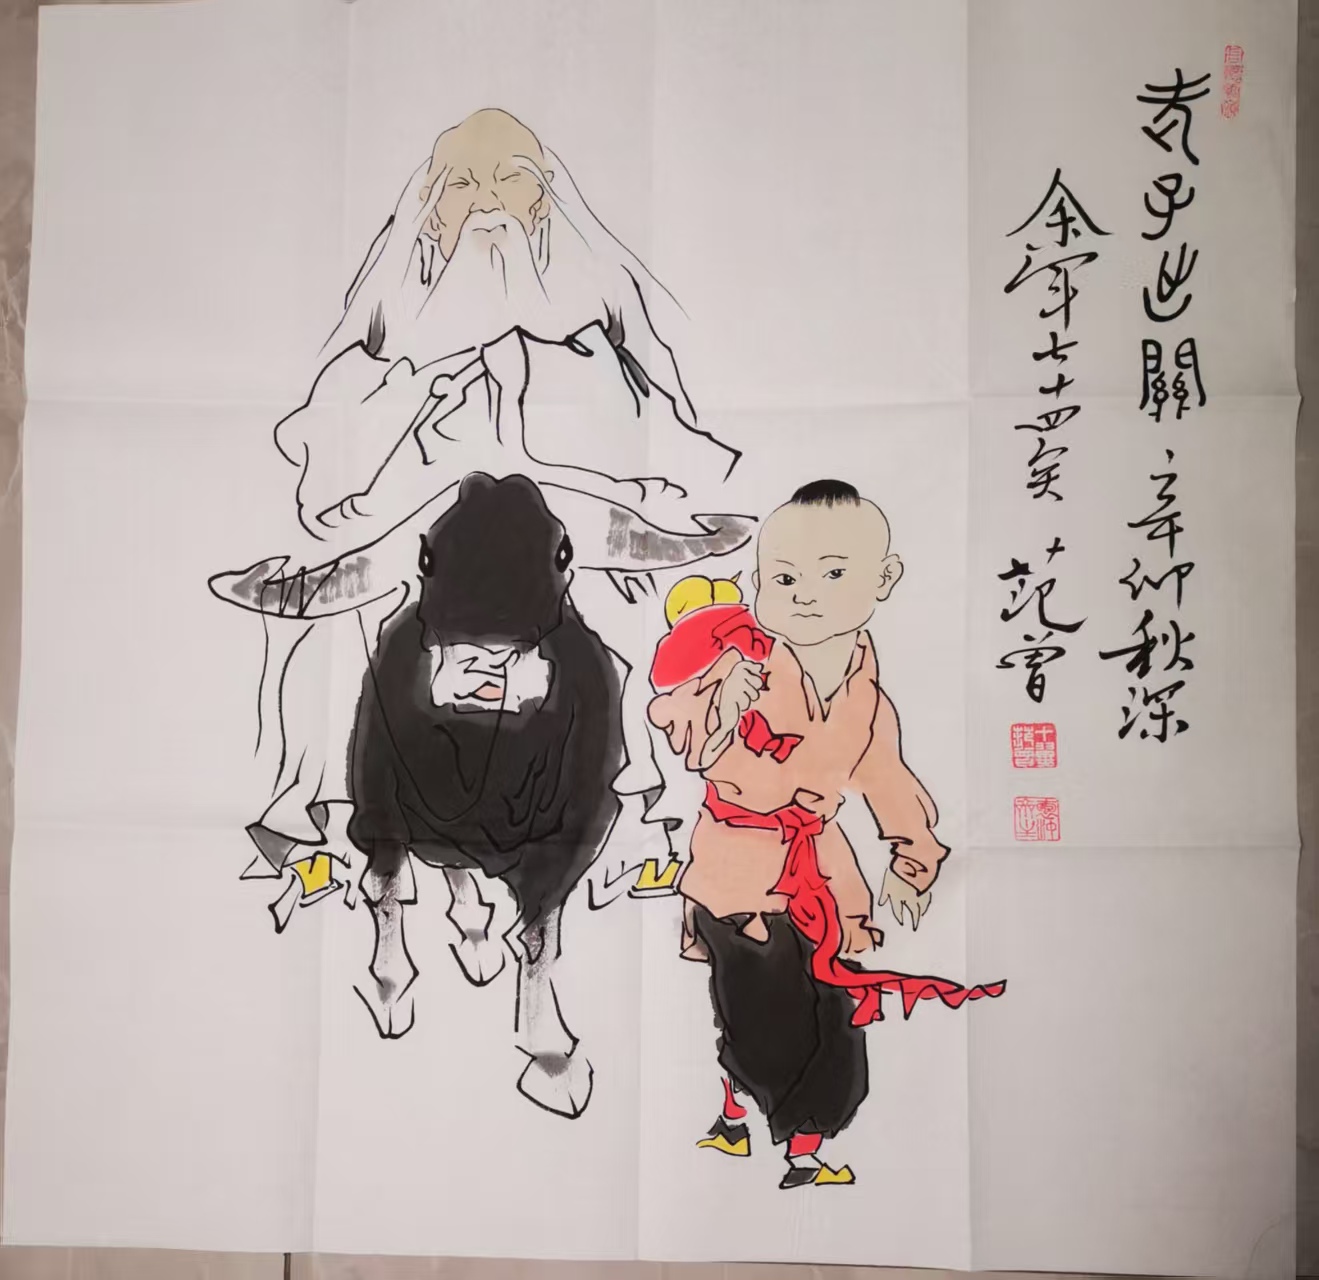 老子出關 辛卯秋深
余年七十四矣 范曾